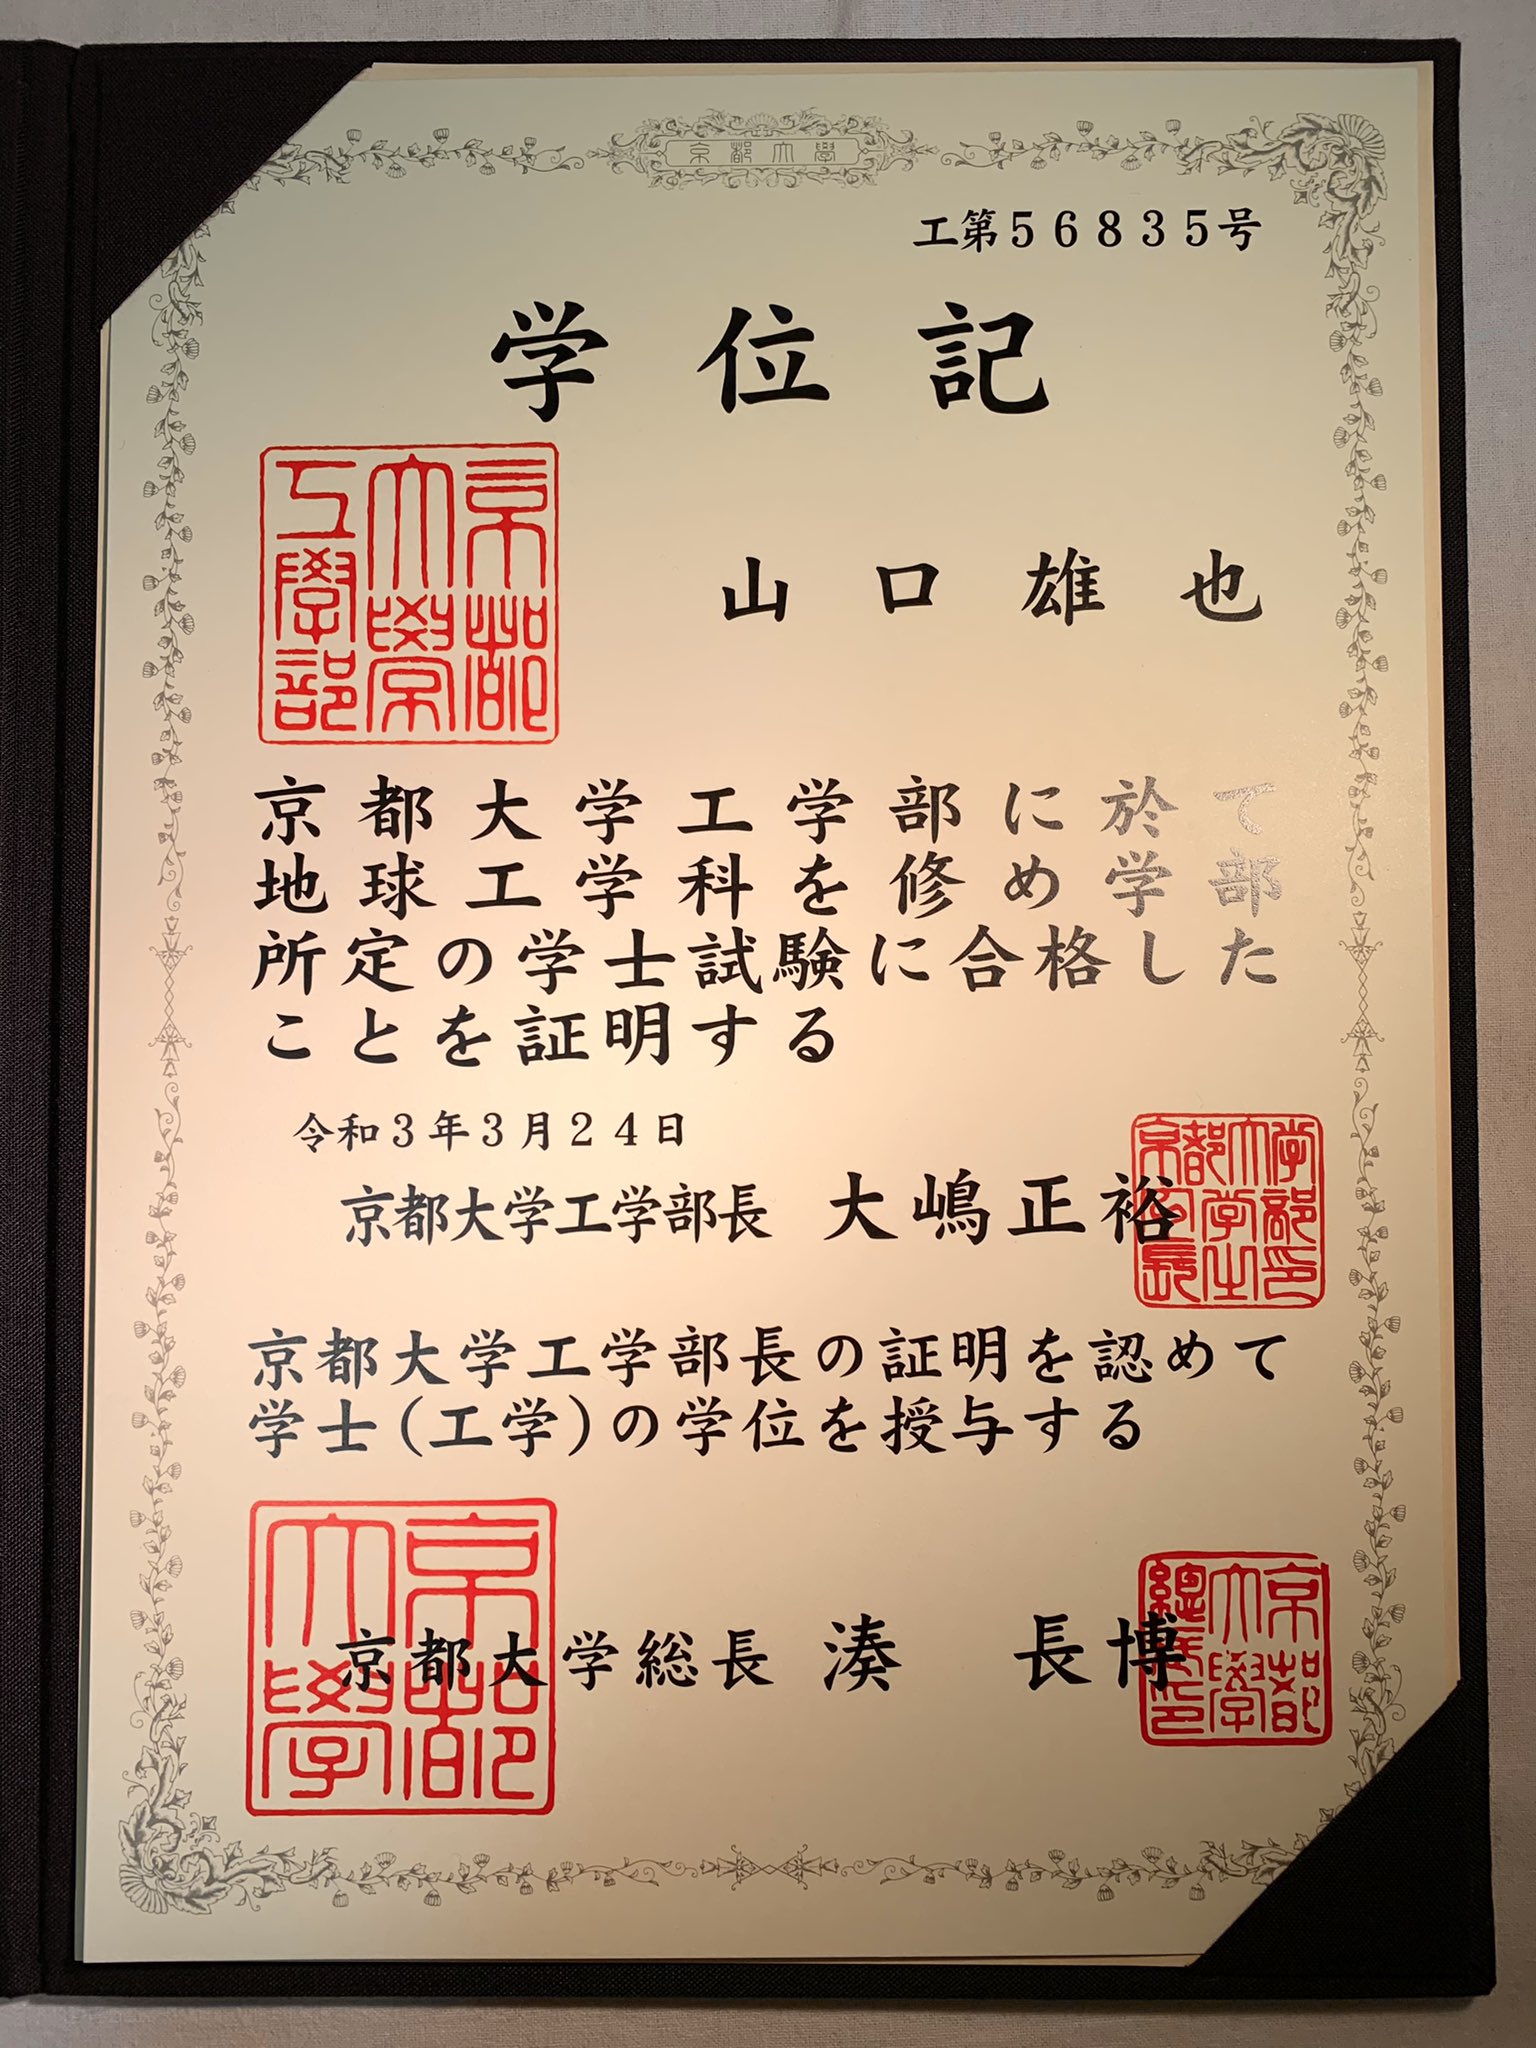 京都大學
工第56835号
学位記
京都大學工學部
山口雄也
京都大学工学部に於て
地球工学科を修め学部
所定の学士試験に合格した
ことを証明する
令和3年3月24日
京都大学工学部長 大嶋正裕
京都大学工学部長の証明を認めて
学士(工学)の学位を授与する
京都大學
京都大学総長 湊 長博
京都大學總長印